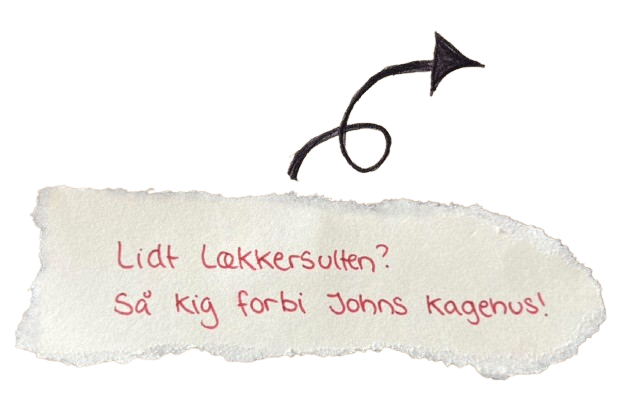 Lidt Lækkersulten?
Så kig forbi Johns Kagehus!